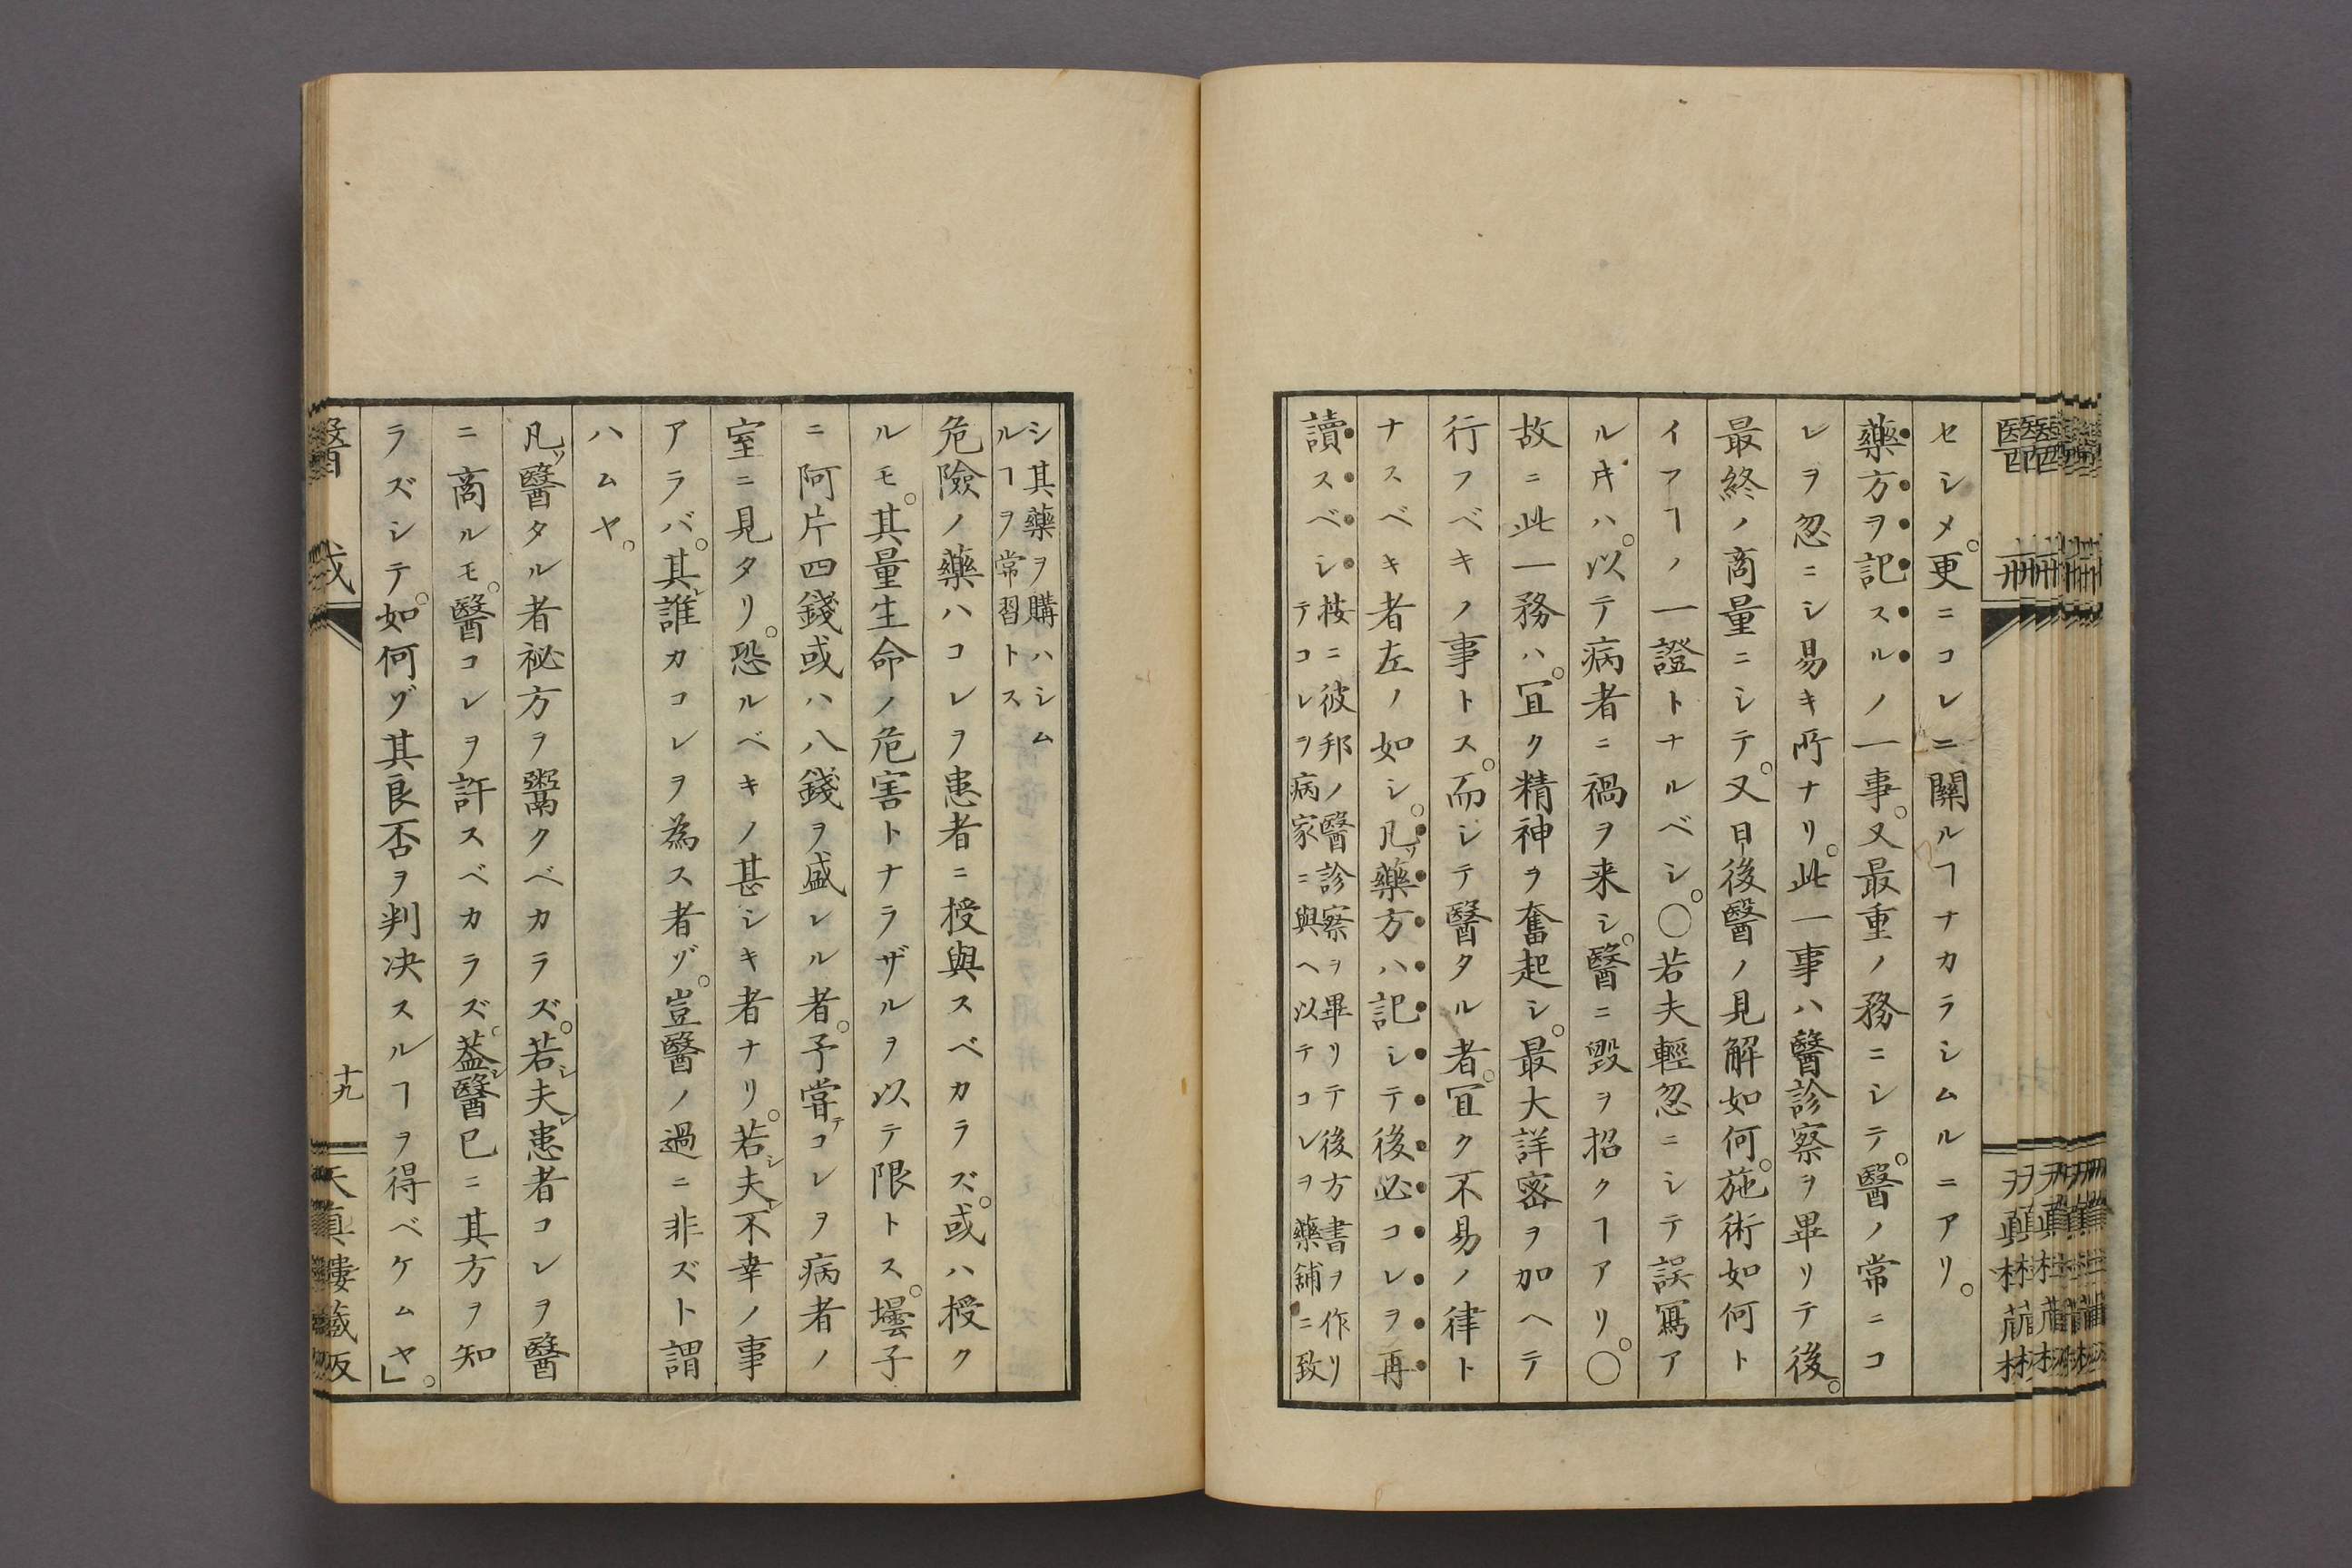 セシメ。更ニコレニ關ルヿナカラシムルニアリ。
藥方ヲ記スルノ一事。又最重ノ務ニシテ。醫ノ常ニコ
レヲ忽ニシ易キ所ナリ。此一事ハ醫診察ヲ畢リテ後。
最終ノ商量ニシテ。又曰後醫ノ見解如何。施術如何ト
イフヿノ一證トナルベシ。○若夫輕忽ニシテ誤寫ア
ルキハ。以テ病者ニ禍ヲ来シ。醫ニ毀ヲ招クヿアリ。○
故ニ此一務ハ。宜ク精神ヲ奮起シ。最大詳密ヲ加ヘテ
行フベキノ事トス。而シテ醫タル者。宜ク不易ノ律ト
ナスベキ者左ノ如シ。凡ソ藥方ハ記シテ後必コレヲ再
讀スベシ
按ニ彼邦ノ醫診察ヲ畢リテ後方書ヲ作リ
テコレヲ病家ニ與ヘ以テコレヲ藥舗ニ致
シ其藥ヲ購ハシム
ルヿヲ常習トス
危險ノ藥ハコレヲ患者ニ授與スベカラズ。或ハ授ク
ルモ。其量生命ノ危害トナラザルヲ以テ限トス。壜子
ニ阿片四錢或ハ八錢ヲ盛レル者。予嘗テコレヲ病者ノ
室ニ見タリ。恐ルベキノ甚シキ者ナリ。若シ夫レ不幸ノ事
アラバ。其レ誰カコレヲ為ス者ゾ。豈醫ノ過ニ非ズト謂
ハムヤ。
凡ソ醫タル者祕方ヲ鬻クベカラズ。若シ夫レ患者コレヲ醫
ニ商ルモ。醫コレヲ許スベカラズ。葢シ醫已ニ其方ヲ知
ラズシテ。如何ゾ其良否ヲ判决スルヿヲ得ベケムヤ」。
醫戒
十九
天真樓藏版